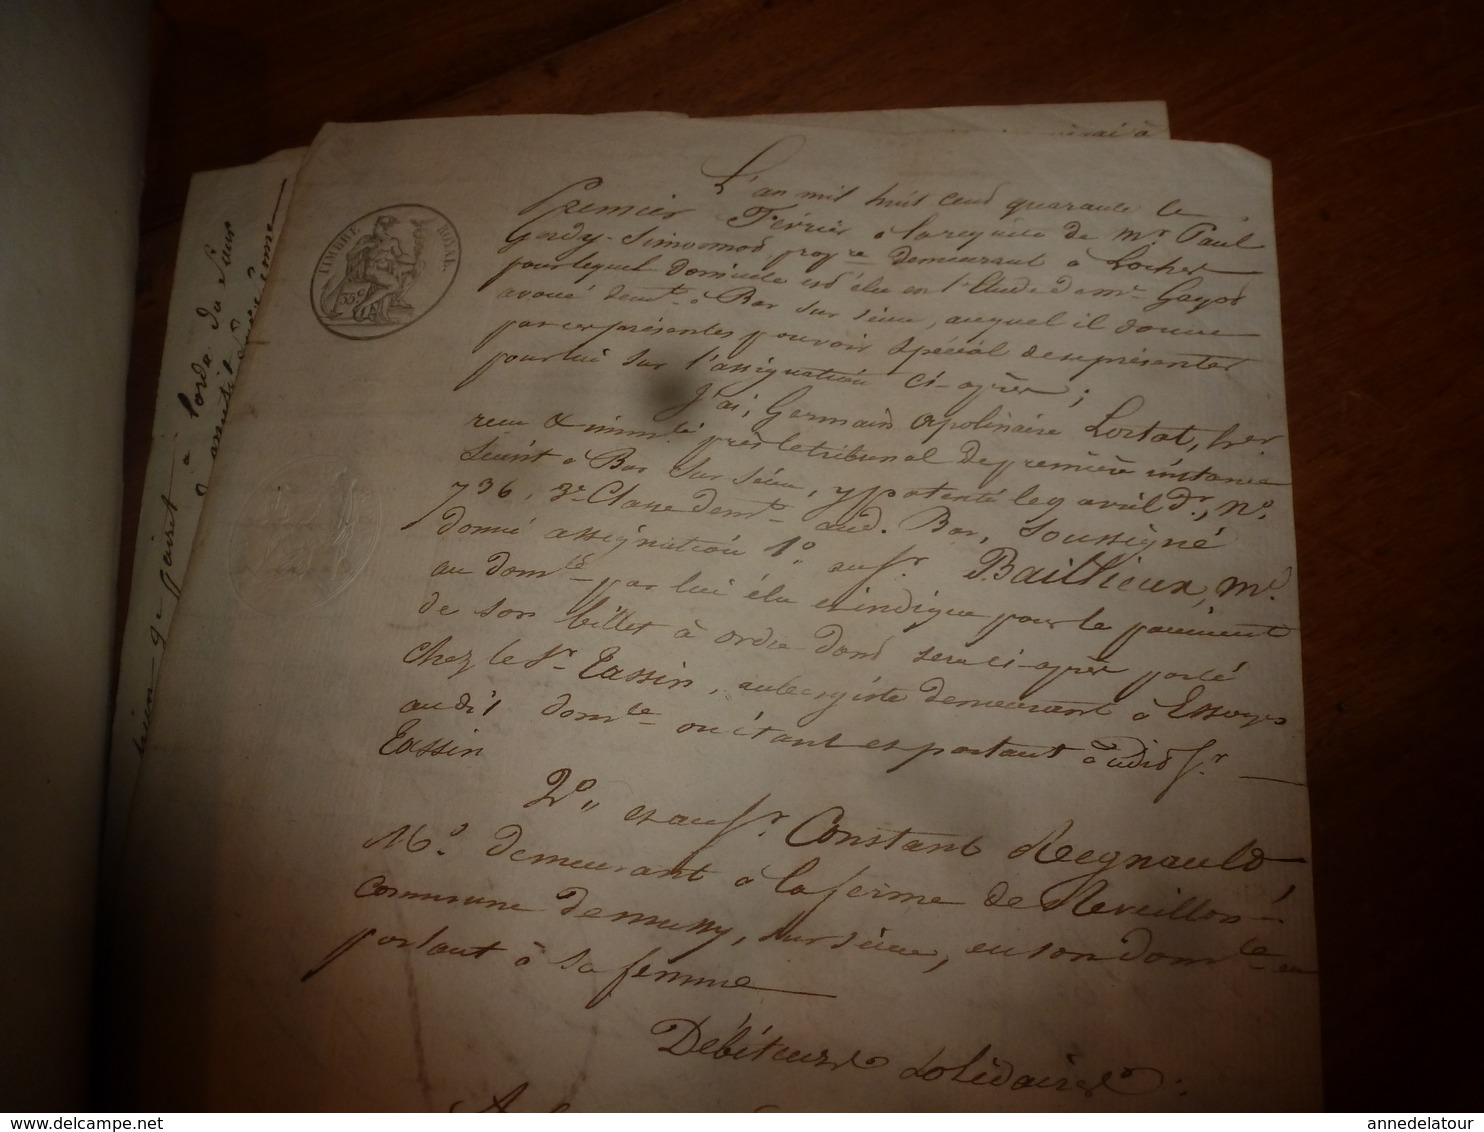 TIMBRE ROYAL
35c
L'an mil huit cent quarante le
Premier Février à la requête de Mr. Paul
Gerdy-Simonnot, propre. demeurant à Loches
pour lequel domicile est élu en l'Etude de Me. Gayot
avoué demt. à Bar sur Seine, auquel il donne
par ces présentes pouvoir spécial de représenter
pour lui sur l'assignation ci-après;
J'ai, Germain Apolinaire Lortat, her
recu & immlé près le tribunal de première instance
séant à Bar sur Seine, y patenté le 9 avril dr., No.
736, 3e. Classe demt. aud. Bar, soussigné
donné assignation 1o. au Sr. Bailleux, md.
au domle. par lui élu et indiqué pour le paiement
de son billet à ordre dont sera ci-après parlé
chez le Sr. Tassin, aubergiste demeurant à Essoyes
audit domle. où étant et parlant audit Sr.
Tassin
2o. et au Sr. Constant Regnault,
Md. demeurant à la ferme de Reveillon
commune de Mussy, sur Seine, en son domle. en
parlant à sa femme
Débiteurs solidaires.
à l'ordre du Sieur
annedelatour
www.delcampe.net